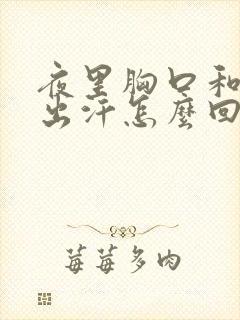 夜里胸口和
出汗怎麼回
莓莓多肉